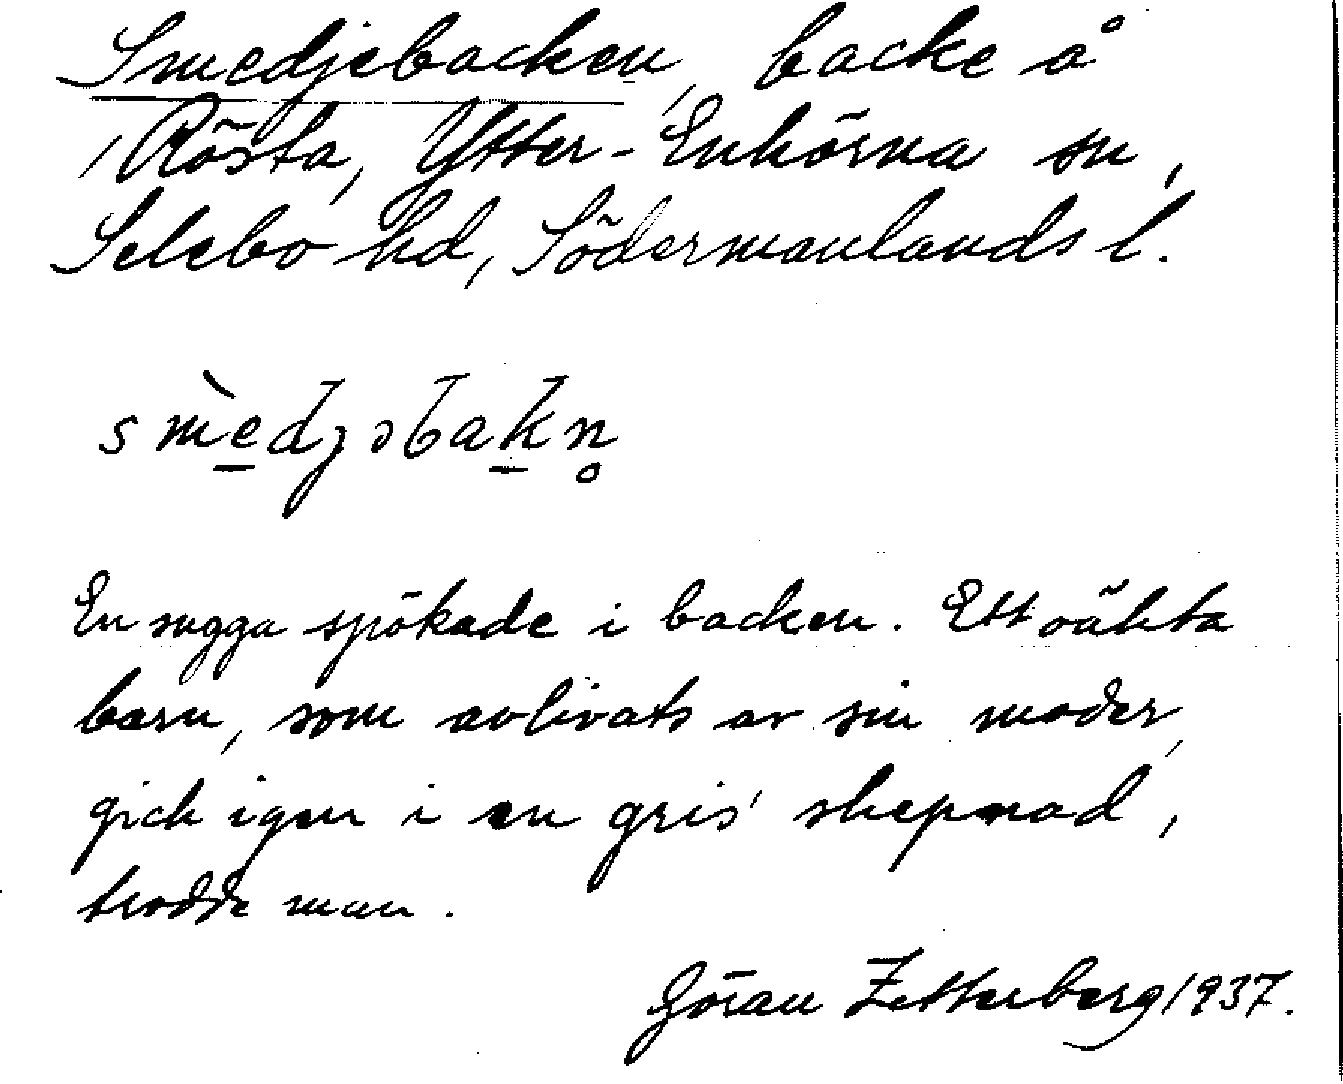 Smedjebacken, backe å
/ Rösta, Ytter-Enhörna sn,
Selebo hd, Södermanlands l.
smèdjəbakn̥
En sugga spökade i backen. Ett oäkta
barn, som avlivats av sin moder,
gick igen i en gris' skepnad,
trodde man.
Göran Zetterberg 1937.